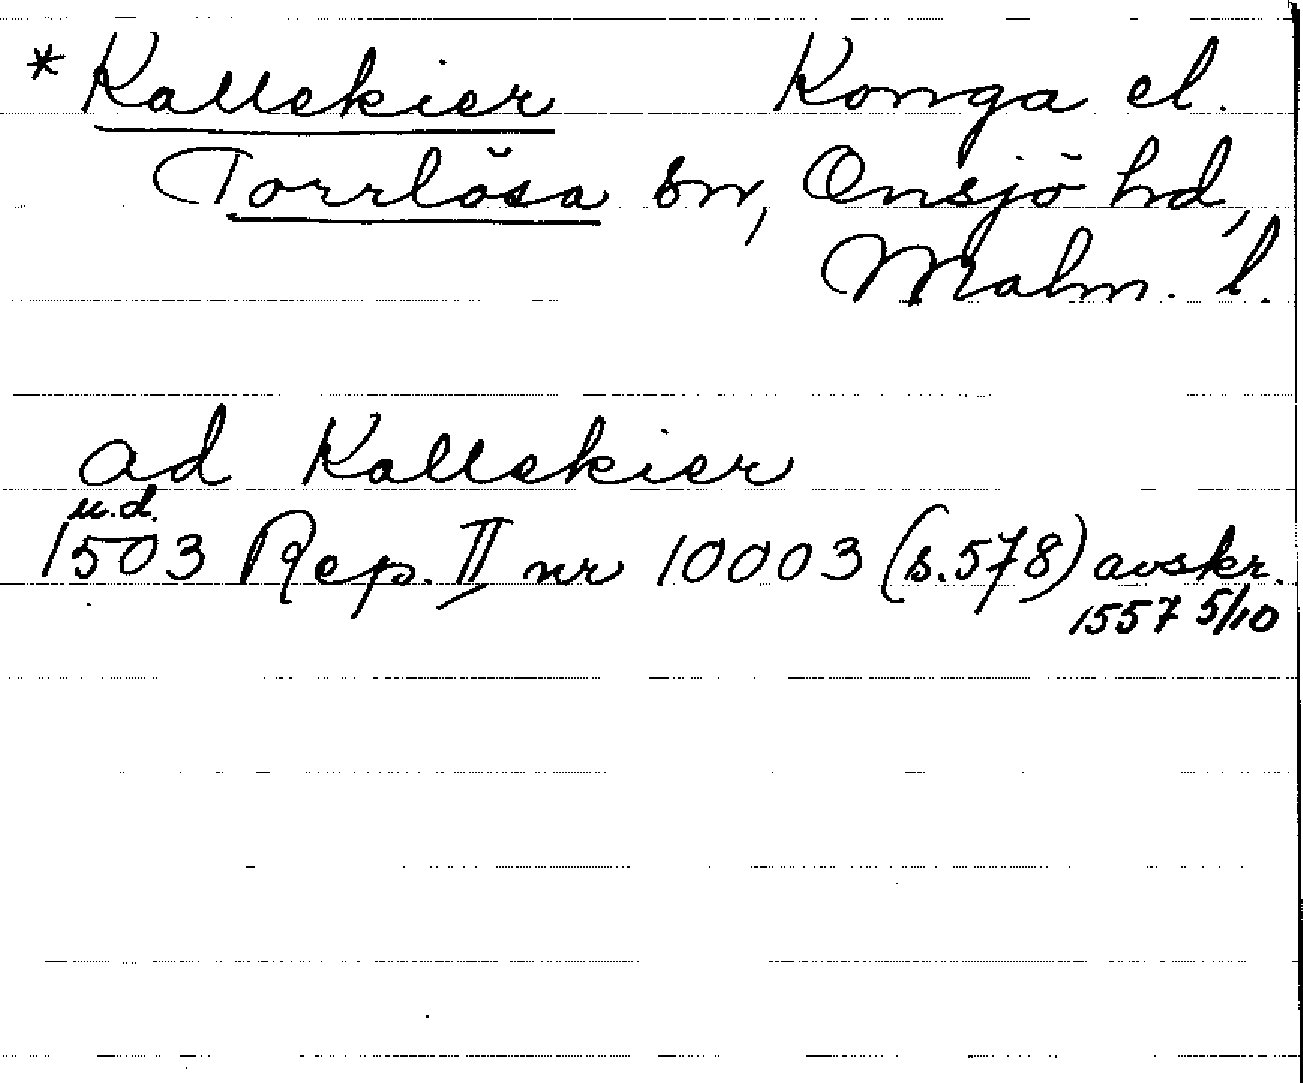 * Kallekier Konga el.
Torrlösa sn, Onsjö hd,
Malm. l.
ad Kallekier
u.d.
1503 Rep. II nr 10003 (s.578) avskr.
1557 5/10